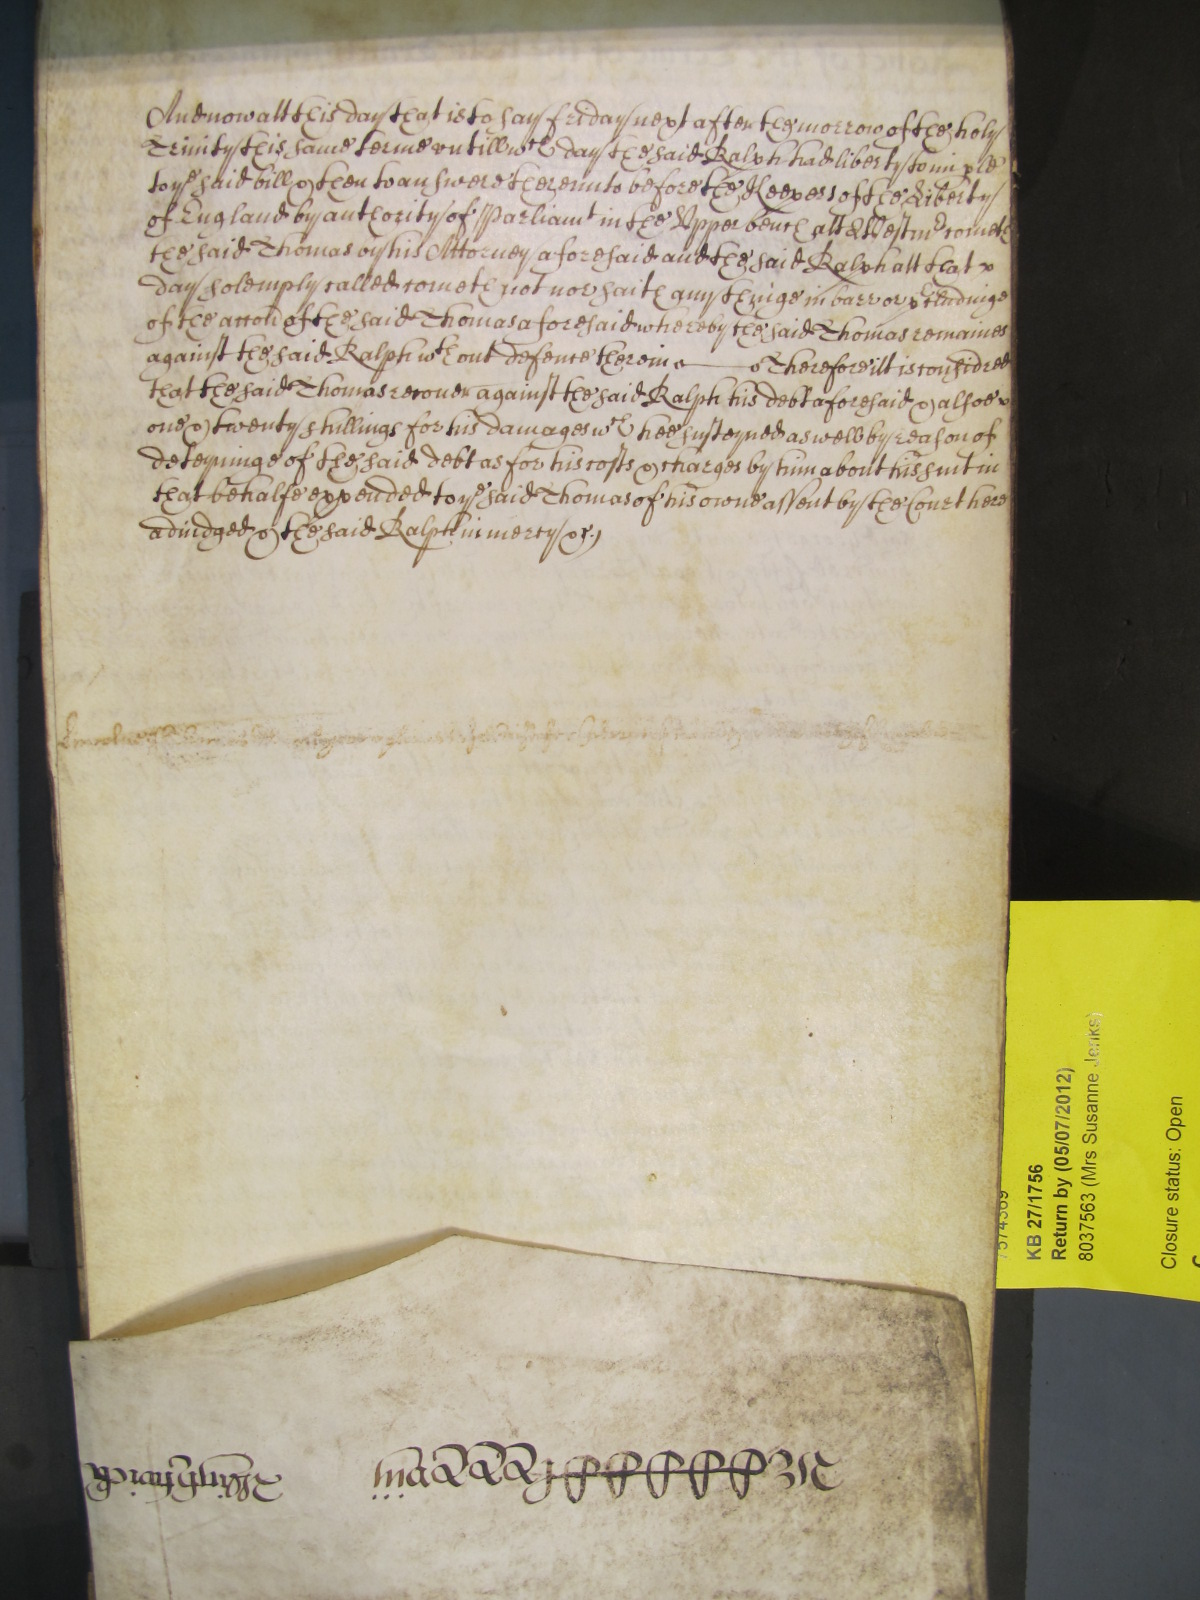 And now att this day that is to say friday next after the morrow of the holy
Trinity this same terme untill wch day the said Ralph had liberty to imple
to ye said bill & then to answere thereunto before the Keepers of the Liberty
of England by authority of Parliamt in the Upper bench att Westmr cometh
the said Thomas by his Attorney aforesaid and the said Ralph att that
day solemply called cometh not nor saith any thinge in barr or p'cludinge
of the accon of the said Thomas aforesaid whereby the said Thomas remaines
against the said Ralph wthout defence therein Therefore itt is considred
that the said Thomas recover against the said Ralph his debt aforesaid & alsoe
one & twenty shillings for his damages wch hee susteyned aswell by reason of
deteyninge of the said debt as for his costs & charges by him about his suit in
that behalfe expended to ye said Thomas of his owne assent by the Court here
adiudged & the said Ralph in mercy &c
KB 27/1756
Return by (05/07/2012)
8037563 (Mrs Susanne Jenks)
Closure status: Open